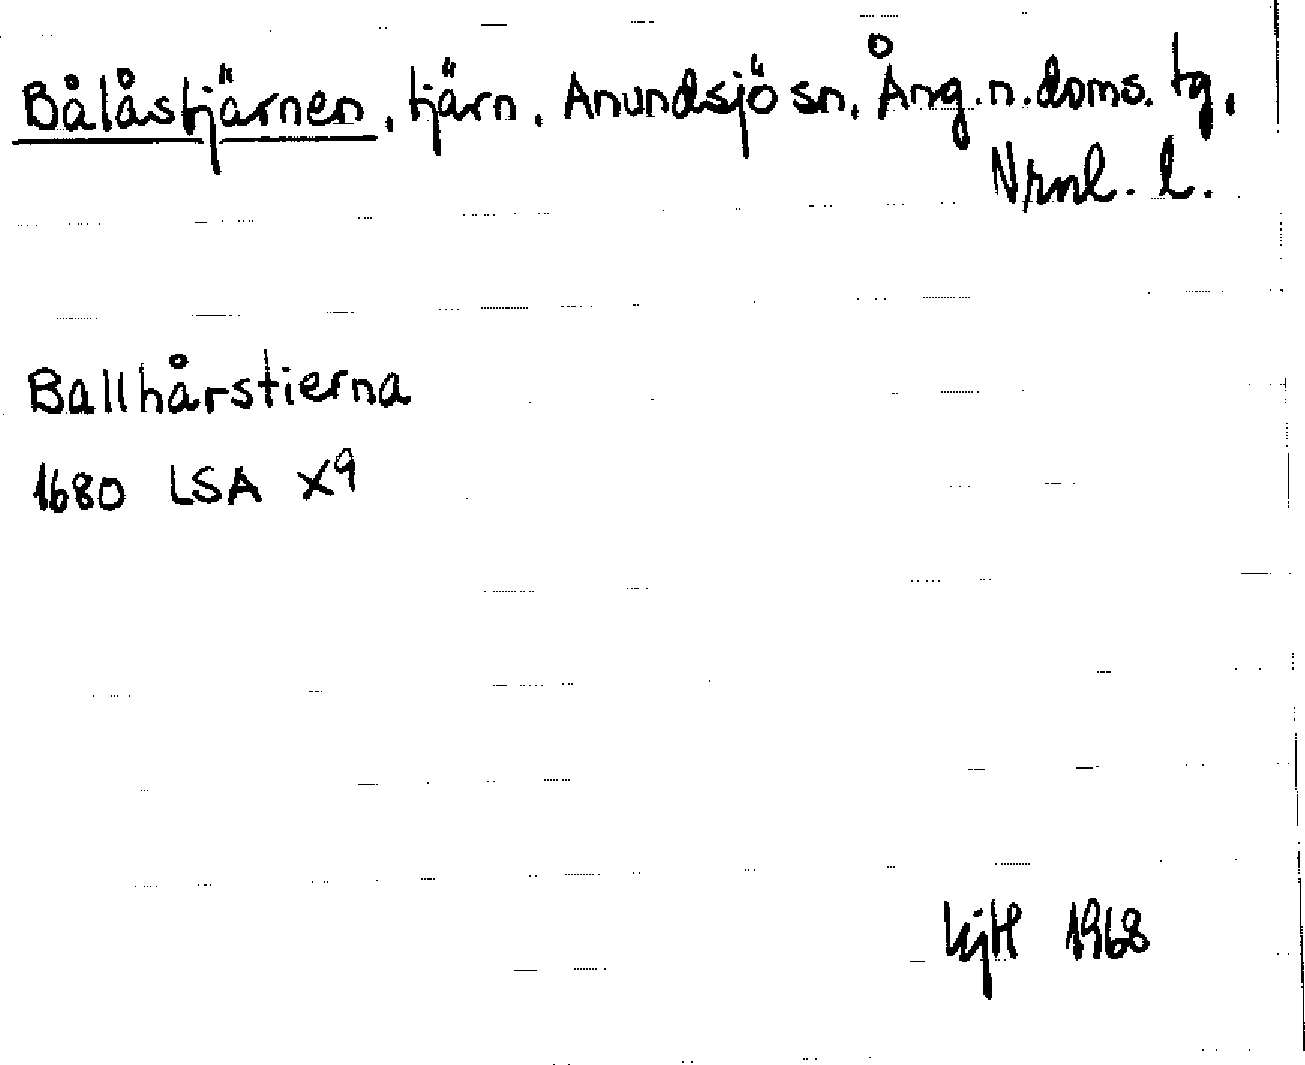 Bålåstjärnen, tjärn, Anundsjö sn, Ång.n.doms. tg,
Vrnl. l.
Ballhårstierna
1680 LSA X9
1968